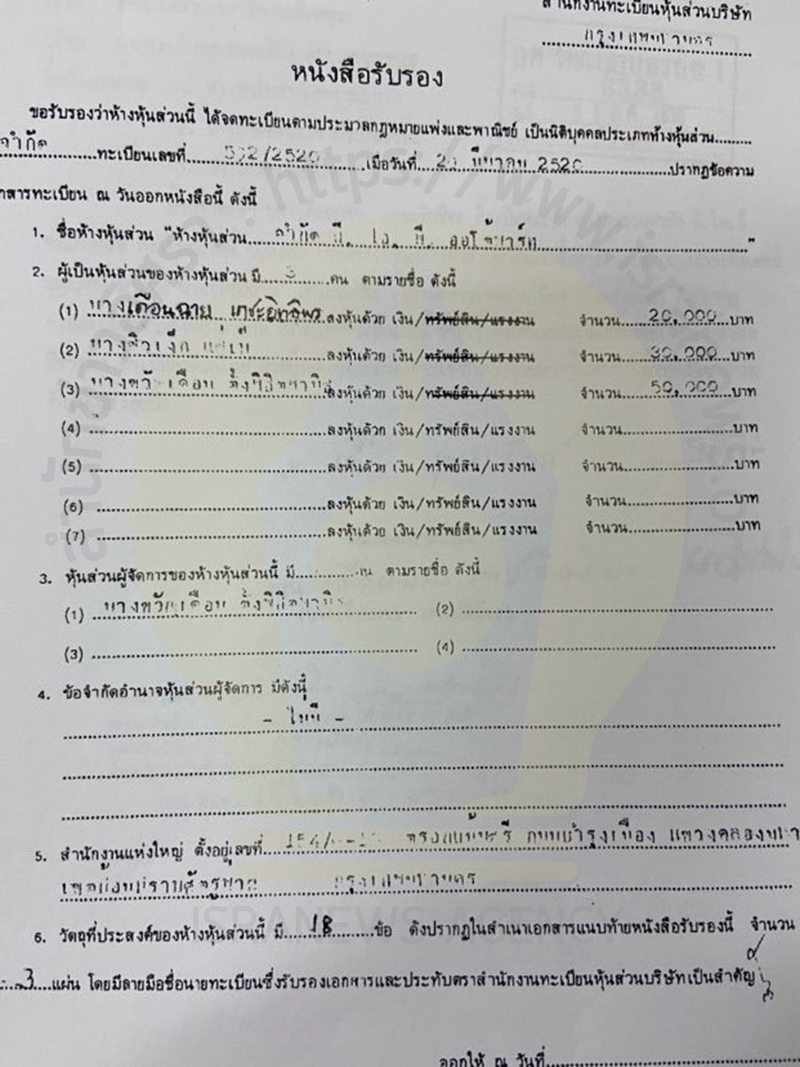 สำนักงานทะเบียนหุ้นส่วนบริษัท
กรุงเทพมหานคร
หนังสือรับรอง
ขอรับรองว่าห้างหุ้นส่วนนี้ ได้จดทะเบียนตามประมวลกฎหมายแพ่งและพาณิชย์ เป็นนิติบุคคลประเภทห้างหุ้นส่วน.........
จำกัด...............ทะเบียนเลขที่......532/2520........เมื่อวันที่...21 มีนาคม 2520...............ปรากฏข้อความ
เอกสารทะเบียน ณ วันออกหนังสือนี้ ดังนี้
1. ชื่อห้างหุ้นส่วน "ห้างหุ้นส่วน....จำกัด ............"
2. ผู้เป็นหุ้นส่วนของห้างหุ้นส่วน มี...3......คน ตามรายชื่อ ดังนี้
(1) นางเดือนฉาย ลงหุ้นด้วย เงิน/ทรัพย์สิน/แรงงาน จำนวน....20,000..บาท
(2) ลงหุ้นด้วย เงิน/ทรัพย์สิน/แรงงาน จำนวน....30,000..บาท
(3) นางขวัญเดือน ลงหุ้นด้วย เงิน/ทรัพย์สิน/แรงงาน จำนวน....50,000..บาท
(4) ........................ลงหุ้นด้วย เงิน/ทรัพย์สิน/แรงงาน จำนวน....................บาท
(5) ........................ลงหุ้นด้วย เงิน/ทรัพย์สิน/แรงงาน จำนวน....................บาท
(6) ........................ลงหุ้นด้วย เงิน/ทรัพย์สิน/แรงงาน จำนวน....................บาท
(7) ........................ลงหุ้นด้วย เงิน/ทรัพย์สิน/แรงงาน จำนวน....................บาท
3. หุ้นส่วนผู้จัดการของห้างหุ้นส่วนนี้ มี............คน ตามรายชื่อ ดังนี้
(1) นางขวัญเดือน (2) ........................
(3) ........................ (4) ........................
4. ข้อจำกัดอำนาจหุ้นส่วนผู้จัดการ มีดังนี้
- ไม่มี -
5. สำนักงานแห่งใหญ่ ตั้งอยู่เลขที่ ถนนบำรุงเมือง แขวงคลองมหา
เขตป้อมปราบศัตรูพ่าย กรุงเทพมหานคร
6. วัตถุที่ประสงค์ของห้างหุ้นส่วนนี้ มี....18........ข้อ ดังปรากฏในสำเนาเอกสารแนบท้ายหนังสือรับรองนี้ จำนวน
...3....แผ่น โดยมีลายมือชื่อนายทะเบียนซึ่งรับรองเอกสารและประทับตราสำนักงานทะเบียนหุ้นส่วนบริษัทเป็นสำคัญ
ออกให้ ณ วันที่........................